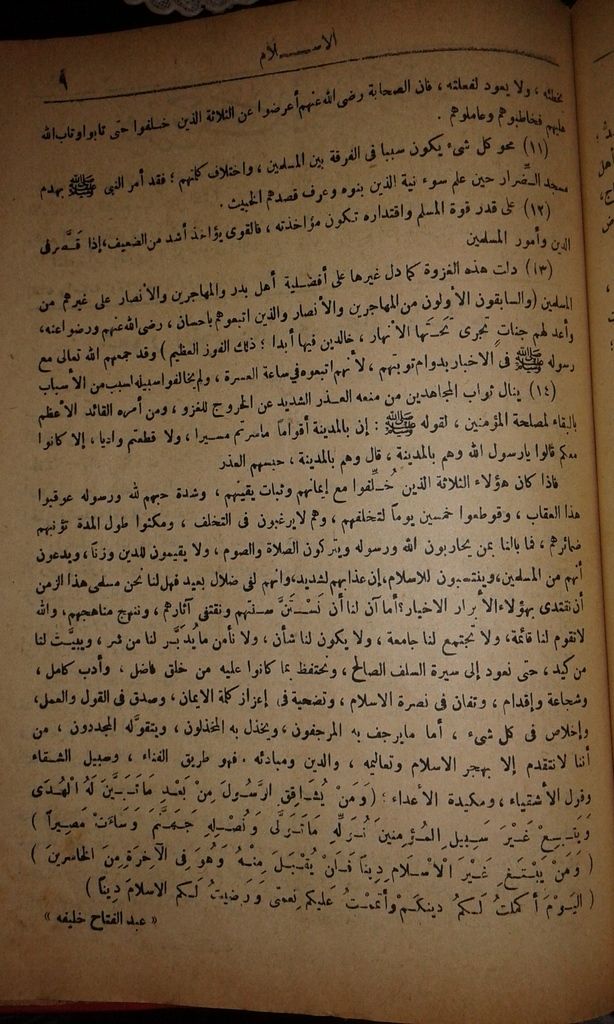 الاســـلام
٩
بخطئه ، ولا يعود لفعلته ، فان الصحابة رضى الله عنهم أعرضوا عن الثلاثة الذين خلفوا حتى تابوا وتاب الله
عليهم فخاطبوهم وعاملوهم .
(١١) محو كل شىء يكون سببا فى الفرقة بين المسلمين ، واختلاف كلمتهم ؛ فقد أمر النبى ﷺ بهدم
مسجد الضرار حين علم سوء نية الذين بنوه وعرف قصدهم الخبيث .
(١٢) على قدر قوة المسلم واقتداره تكون مؤاخذته ، فالقوى يؤاخذ أشد من الضعيف ، إذا قصر فى
الدين وأمور المسلمين
(١٣) دلت هذه الغزوة كما دل غيرها على أفضلية أهل بدر والمهاجرين والأنصار على غيرهم من
المسلمين (والسابقون الأولون من المهاجرين والأنصار والذين اتبعوهم باحسان ، رضى الله عنهم ورضوا عنه،
وأعد لهم جنات تجرى تحتها الأنهار ، خالدين فيها أبدا ؛ ذلك الفوز العظيم ) وقد جمعهم الله تعالى مع
رسوله ﷺ فى الاخبار بدوام توبتهم ، لأنهم اتبعوه فى ساعة العسرة ، ولم يخالفوا سبيله لسبب من الأسباب
(١٤) ينال ثواب المجاهدين من منعه العذر الشديد عن الخروج للغزو ، ومن أمره القائد الأعظم
بالبقاء لمصلحة المؤمنين ، لقوله ﷺ : إن بالمدينة أقواما ماسرتم مسيرا ، ولا قطعتم واديا ، إلا كانوا
معكم قالوا يارسول الله وهم بالمدينة ، قال وهم بالمدينة ، حبسهم العذر
فاذا كان هؤلاء الثلاثة الذين خُلِّفوا مع إيمانهم وثبات يقينهم ، وشدة حبهم لله ورسوله عوقبوا
هذا العقاب ، وقوطعوا خمسين يوماً لتخلفهم ، وهم لا يرغبون فى التخلف ، ومكثوا طول المدة تؤنبهم
ضمائرهم ، فما بالنا بمن يحاربون الله ورسوله ويتركون الصلاة والصوم ، ولا يقيمون للدين وزنا ، ويدعون
أنهم من المسلمين، وينتسبون للاسلام، إن عذابهم لشديد، وانهم لفى ضلال بعيد فهل لنا نحن مسلمى هذا الزمن
أن نقتدى بهؤلاء الأبرار الاخيار؟ أما آن لنا أن نَسْتَنَّ سنتهم ونقتفى آثارهم ، وننهج مناهجهم، والله
لاتقوم لنا قائمة، ولا تجتمع لنا جامعة ، ولا يكون لنا شأن ، ولا نأمن ما يُدبَّر لنا من شر ، ويبيَّت لنا
من كيد ، حتى نعود إلى سيرة السلف الصالح ، ونحتفظ بما كانوا عليه من خلق فاضل ، وأدب كامل ،
وشجاعة وإقدام ، وتفان فى نصرة الاسلام ، وتضحية فى إعزاز كلمة الايمان ، وصدق فى القول والعمل،
وإخلاص فى كل شىء ، أما مايرجف به المرجفون ، ويخذل به المخذلون ، ويتقوله المجددون ، من
أننا لانتقدم إلا بهجر الاسلام وتعاليمه ، والدين ومبادئه . فهو طريق الفناء ، وسبيل الشقاء
وقول الأشقياء ، ومكيدة الأعداء : (وَمَنْ يُشَاقِقِ الرَّسُولَ مِنْ بَعْدِ مَا تَبَيَّنَ لَهُ الْهُدَى
وَيَتَّبِعْ غَيْرَ سَبِيلِ الْمُؤمِنِينَ نُوَلِّهِ مَا تَوَلَّى وَنُصْلِهِ جَهَنَّمَ وَسَاءَتْ مَصِيراً )
( وَمَنْ يَبْتَغِ غَيْرَ الْاسْلَامِ دِيناً فَلَنْ يُقْبَلَ مِنْهُ وَهُوَ فِى الآخِرَةِ مِنَ الخَاسِرِينَ )
( الْيَوْمَ أَكْمَلْتُ لَكُمْ دِينَكُمْ وَأَتْمَمْتُ عَلَيكم نِعمَتِى وَرَضِيتُ لَكم الاسلامَ دِيناً )
« عبد الفتاح خليفه »